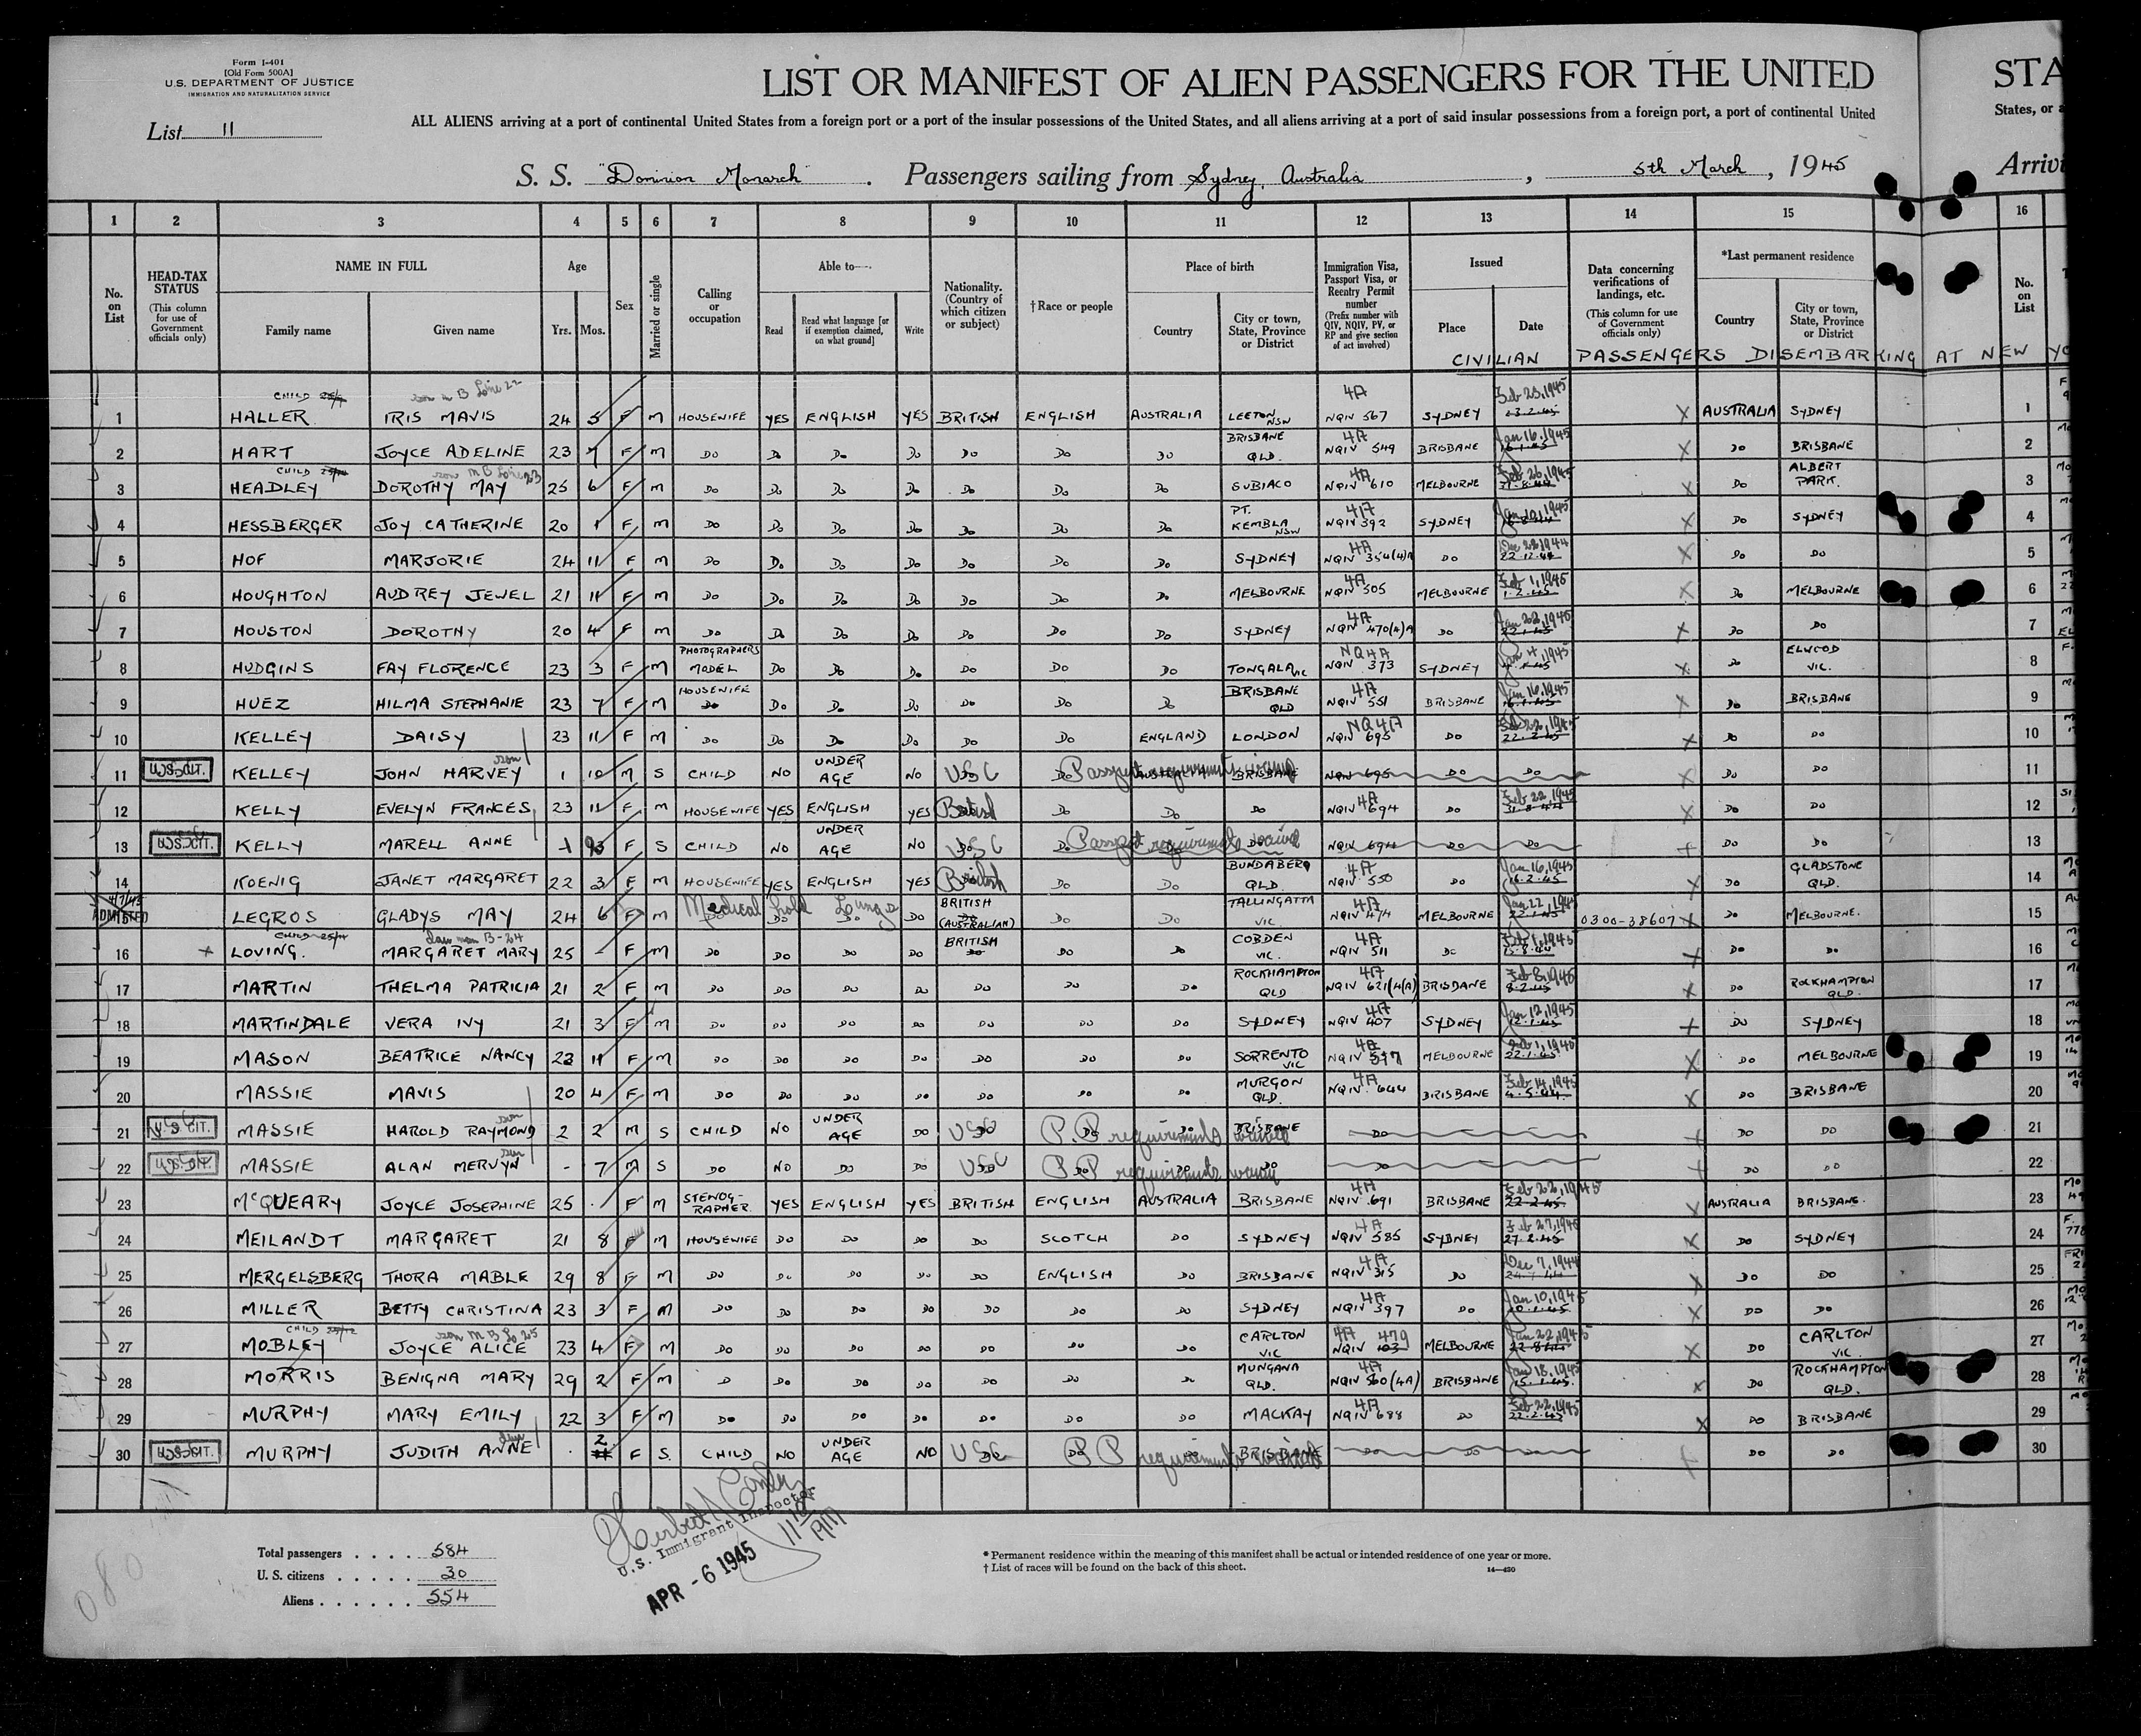 Form I-401
[Old Form 500A]
U.S. DEPARTMENT OF JUSTICE
IMMIGRATION AND NATURALIZATION SERVICE
List 11
LIST OR MANIFEST OF ALIEN PASSENGERS FOR THE UNITED STA
ALL ALIENS arriving at a port of continental United States from a foreign port or a port of the insular possessions of the United States, and all aliens arriving at a port of said insular possessions from a foreign port, a port of continental United States, or a
S. S. "Dominion Monarch". Passengers sailing from Sydney, Australia, 5th March, 1945 Arrivi
1 2 3 4 5 6 7 8 9 10 11 12 13 14 15 16
No. on List
HEAD-TAX STATUS (This column for use of Government officials only)
NAME IN FULL Family name Given name
Age Yrs. Mos.
Sex
Married or single
Calling or occupation
Able to— Read Read what language [or if exemption claimed, on what ground] Write
Nationality. (Country of which citizen or subject)
†Race or people
Place of birth Country City or town, State, Province or District
Immigration Visa, Passport Visa, or Reentry Permit number (Prefix number with QIV, NQIV, PV, or RP and give section of act involved)
Issued Place Date
Data concerning verifications of landings, etc. (This column for use of Government officials only)
*Last permanent residence Country City or town, State, Province or District
No. on List
CIVILIAN PASSENGERS DISEMBARKING AT NEW YO
CHILD son on B Line 22
1 HALLER IRIS MAVIS 24 5 F M HOUSEWIFE YES ENGLISH YES BRITISH ENGLISH AUSTRALIA LEETON NSW 4A NQIV 567 SYDNEY Feb 23, 1945 X AUSTRALIA SYDNEY 1
2 HART JOYCE ADELINE 23 7 F M DO Do Do Do Do Do DO BRISBANE QLD. 4A NQIV 549 BRISBANE Jan 16, 1945 16.1.45 X DO BRISBANE 2
CHILD
3 HEADLEY DOROTHY MAY 25 6 F M DO Do Do Do Do Do Do SUBIACO 4A NQIV 610 MELBOURNE Feb 26, 1945 X DO ALBERT PARK. 3
4 HESSBERGER JOY CATHERINE 20 1 F M DO Do Do Do Do Do Do PT. KEMBLA NSW 4A NQIV 392 SYDNEY Jan 12, 1945 X DO SYDNEY 4
5 HOF MARJORIE 24 11 F M DO Do Do Do Do Do Do SYDNEY 4A NQIV 354(4)A DO Dec 22, 1944 22.12.44 X DO DO 5
6 HOUGHTON AUDREY JEWEL 21 11 F M DO Do Do Do Do Do Do MELBOURNE 4A NQIV 505 MELBOURNE Feb 1, 1945 1.2.45 X Do MELBOURNE 6
7 HOUSTON DOROTHY 20 4 F M Do Do Do Do Do Do Do SYDNEY 4A NQIV 470(4)A DO Jan 22, 1945 22.1.45 X DO DO 7
8 HUDGINS FAY FLORENCE 23 3 F M PHOTOGRAPHERS MODEL Do Do Do DO Do Do TONGALA VIC NQ4A NQIV 373 SYDNEY Jan 4, 1945 X Do ELWOOD VIC. 8
9 HUEZ HILMA STEPHANIE 23 7 F M HOUSEWIFE Do Do Do Do Do Do Do BRISBANE QLD 4A NQIV 551 BRISBANE Jan 16, 1945 16.1.45 X Do BRISBANE 9
10 KELLEY DAISY 23 11 F M DO Do Do Do Do Do ENGLAND LONDON NQ4A NQIV 695 DO Feb 22, 1945 22.2.45 X Do DO 10
11 U.S. CIT. KELLEY JOHN HARVEY son 1 10 M S CHILD NO UNDER AGE NO USC Do Passport requirements waived AUSTRALIA BRISBANE NQIV 695 DO DO X Do DO 11
12 KELLY EVELYN FRANCES 23 11 F M HOUSEWIFE YES ENGLISH YES British Do Do DO 4A NQIV 694 DO Feb 22, 1945 X DO DO 12
13 U.S. CIT. KELLY MARELL ANNE F S CHILD NO UNDER AGE NO USC Do Passport requirements waived NQIV 694 DO DO + DO DO 13
14 KOENIG JANET MARGARET 22 3 F M HOUSEWIFE YES ENGLISH YES British Do Do BUNDABERG QLD. 4A NQIV 550 DO Jan 16, 1945 16.2.45 X DO GLADSTONE QLD. 14
ADMITTED LEGROS GLADYS MAY 24 6 F M Medical hold Lungs DO DO DO BRITISH (AUSTRALIAN) DO DO TALLINGATTA VIC 4A NQIV 474 MELBOURNE Jan 22, 1945 22.1.45 0300-38607 X DO MELBOURNE. 15
CHILD
16 + LOVING. MARGARET MARY 25 - F M DO DO DO DO BRITISH DO DO COBDEN VIC. 4A NQIV 511 DO Feb 1, 1945 X DO DO 16
17 MARTIN THELMA PATRICIA 21 2 F M DO DO DO DO DO DO DO ROCKHAMPTON QLD 4A NQIV 621(4(A) BRISBANE Feb 8, 1945 8.2.45 X DO ROCKHAMPTON QLD. 17
18 MARTINDALE VERA IVY 21 3 F M DO DO DO DO DO DO DO SYDNEY 4A NQIV 407 SYDNEY Jan 12, 1945 12.1.45 + DO SYDNEY 18
19 MASON BEATRICE NANCY 23 11 F M DO DO DO DO DO DO DO SORRENTO VIC NQIV 517 MELBOURNE Feb 1, 1945 22.1.45 X DO MELBOURNE 19
20 MASSIE MAVIS 20 4 F M DO DO DO DO DO DO DO MURGON QLD. 4A NQIV 644 BRISBANE Feb 14, 1945 X DO BRISBANE 20
21 U.S. CIT. MASSIE HAROLD RAYMOND son 2 2 M S CHILD NO UNDER AGE DO USC P.P requirements waived BRISBANE DO + DO DO 21
22 U.S. CIT. MASSIE ALAN MERVYN son - 7 M S DO NO DO DO USC P P requirements waived DO DO + DO DO 22
23 McQUEARY JOYCE JOSEPHINE 25 - F M STENOG-RAPHER. YES ENGLISH YES BRITISH ENGLISH AUSTRALIA BRISBANE 4A NQIV 691 BRISBANE Feb 22, 1945 22.2.45 X AUSTRALIA BRISBANE. 23
24 MEILANDT MARGARET 21 8 F M HOUSEWIFE DO DO DO DO SCOTCH DO SYDNEY 4A NQIV 585 SYDNEY Feb 27, 1945 27.2.45 X DO SYDNEY 24
25 MERGELSBERG THORA MABLE 29 8 F M DO DO DO DO DO ENGLISH DO BRISBANE 4A NQIV 315 DO Dec 7, 1944 X DO DO 25
26 MILLER BETTY CHRISTINA 23 3 F M DO DO DO DO DO DO DO SYDNEY 4A NQIV 397 DO Jan 10, 1945 10.1.45 X DO DO 26
CHILD
27 MOBLEY JOYCE ALICE 23 4 F M DO DO DO DO DO DO DO CARLTON VIC 4A 479 NQIV 103 MELBOURNE Jan 22, 1945 X DO CARLTON VIC. 27
28 MORRIS BENIGNA MARY 29 2 F M D DO DO DO DO DO DO MUNGANA QLD. 4A NQIV 560(4A) BRISBANE Jan 18, 1945 X DO ROCKHAMPTON QLD. 28
29 MURPHY MARY EMILY 22 3 F M DO DO DO DO DO DO DO MACKAY 4A NQIV 688 DO Feb 22, 1945 22.2.45 X DO BRISBANE 29
30 U.S. CIT. MURPHY JUDITH ANNE 2 F S. CHILD NO UNDER AGE NO USC P P requirements waived BRISBANE DO DO DO + DO DO 30
U.S. Immigrant Inspector
APR - 6 1945
Total passengers . . . . 584
U. S. citizens . . . . . 30
Aliens . . . . . . 554
* Permanent residence within the meaning of this manifest shall be actual or intended residence of one year or more.
† List of races will be found on the back of this sheet.
14—430
080